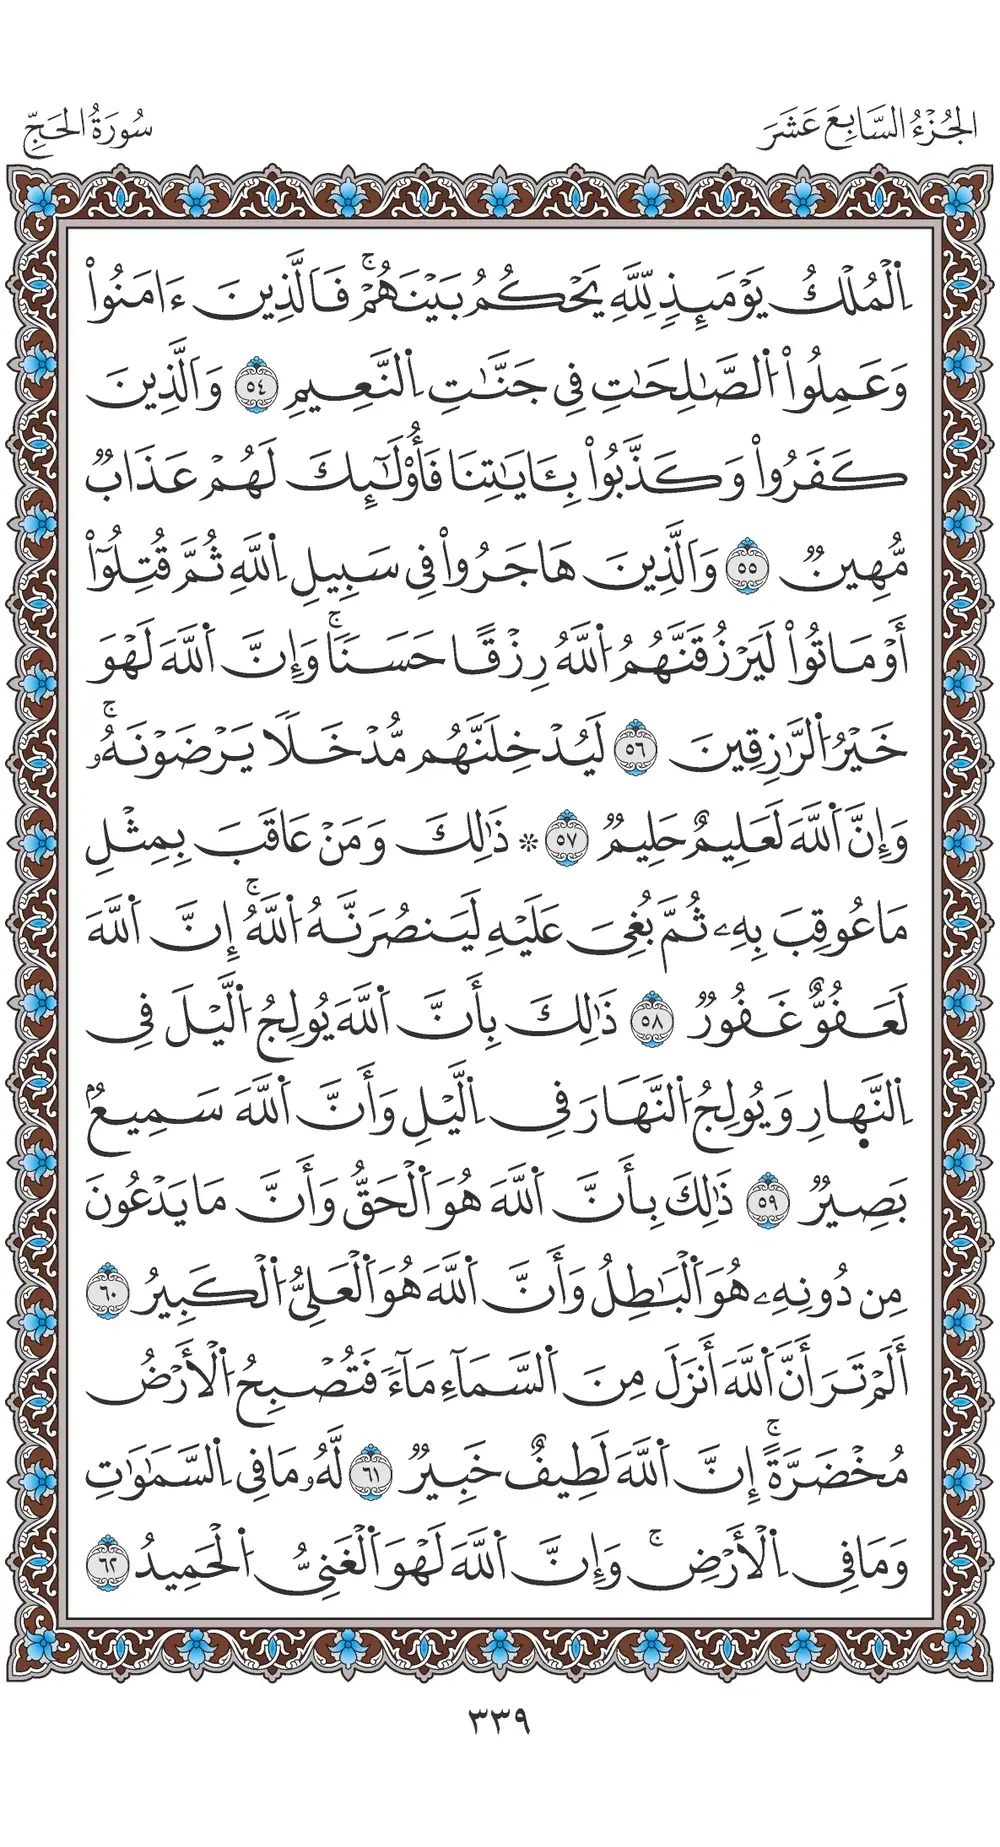 الجُزْءُ السَّابِعَ عَشَرَ
سُورَةُ الحَجِّ
اِ۬لْمُلْكُ يَوْمَئِذٖ لِّلَّهِ يَحْكُمُ بَيْنَهُمْۚ فَالَّذِينَ ءَامَنُواْ
وَعَمِلُواْ اُ۬لصَّٰلِحَٰتِ فِي جَنَّٰتِ اِ۬لنَّعِيمِ ٥٤ وَالَّذِينَ
كَفَرُواْ وَكَذَّبُواْ بِـَٔايَٰتِنَا فَأُوْلَٰٓئِكَ لَهُمْ عَذَابٞ
مُّهِينٞ ٥٥ وَالَّذِينَ هَاجَرُواْ فِي سَبِيلِ اِ۬للَّهِ ثُمَّ قُتِلُوٓاْ
أَوْ مَاتُواْ لَيَرْزُقَنَّهُمُ اُ۬للَّهُ رِزْقًا حَسَنٗاۚ وَإِنَّ اَ۬للَّهَ لَهْوَ
خَيْرُ اُ۬لرَّٰزِقِينَ ٥٦ لَيُدْخِلَنَّهُم مُّدْخَلٗا يَرْضَوْنَهُۥۚ
وَإِنَّ اَ۬للَّهَ لَعَلِيمٌ حَلِيمٞ ٥٧ ۞ ذَٰلِكَ وَمَنْ عَاقَبَ بِمِثْلِ
مَا عُوقِبَ بِهِۦ ثُمَّ بُغِيَ عَلَيْهِ لَيَنصُرَنَّهُ اُ۬للَّهُۚ إِنَّ اَ۬للَّهَ
لَعَفُوٌّ غَفُورٞ ٥٨ ذَٰلِكَ بِأَنَّ اَ۬للَّهَ يُولِجُ اُ۬لَّيْلَ فِي
اِ۬لنَّهٜارِ وَيُولِجُ اُ۬لنَّهَارَ فِي اِ۬لَّيْلِ وَأَنَّ اَ۬للَّهَ سَمِيعُۢ
بَصِيرٞ ٥٩ ذَٰلِكَ بِأَنَّ اَ۬للَّهَ هُوَ اَ۬لْحَقُّ وَأَنَّ مَا يَدْعُونَ
مِن دُونِهِۦ هُوَ اَ۬لْبَٰطِلُ وَأَنَّ اَ۬للَّهَ هُوَ اَ۬لْعَلِيُّ اُ۬لْكَبِيرُ ٦٠
أَلَمْ تَرَ أَنَّ اَ۬للَّهَ أَنزَلَ مِنَ اَ۬لسَّمَآءِ مَآءٗ فَتُصْبِحُ اُ۬لْأَرْضُ
مُخْضَرَّةًۚ إِنَّ اَ۬للَّهَ لَطِيفٌ خَبِيرٞ ٦١ لَّهُۥ مَا فِي اِ۬لسَّمَٰوَٰتِ
وَمَا فِي اِ۬لْأَرْضِۚ وَإِنَّ اَ۬للَّهَ لَهْوَ اَ۬لْغَنِيُّ اُ۬لْحَمِيدُ ٦٢
٣٣٩